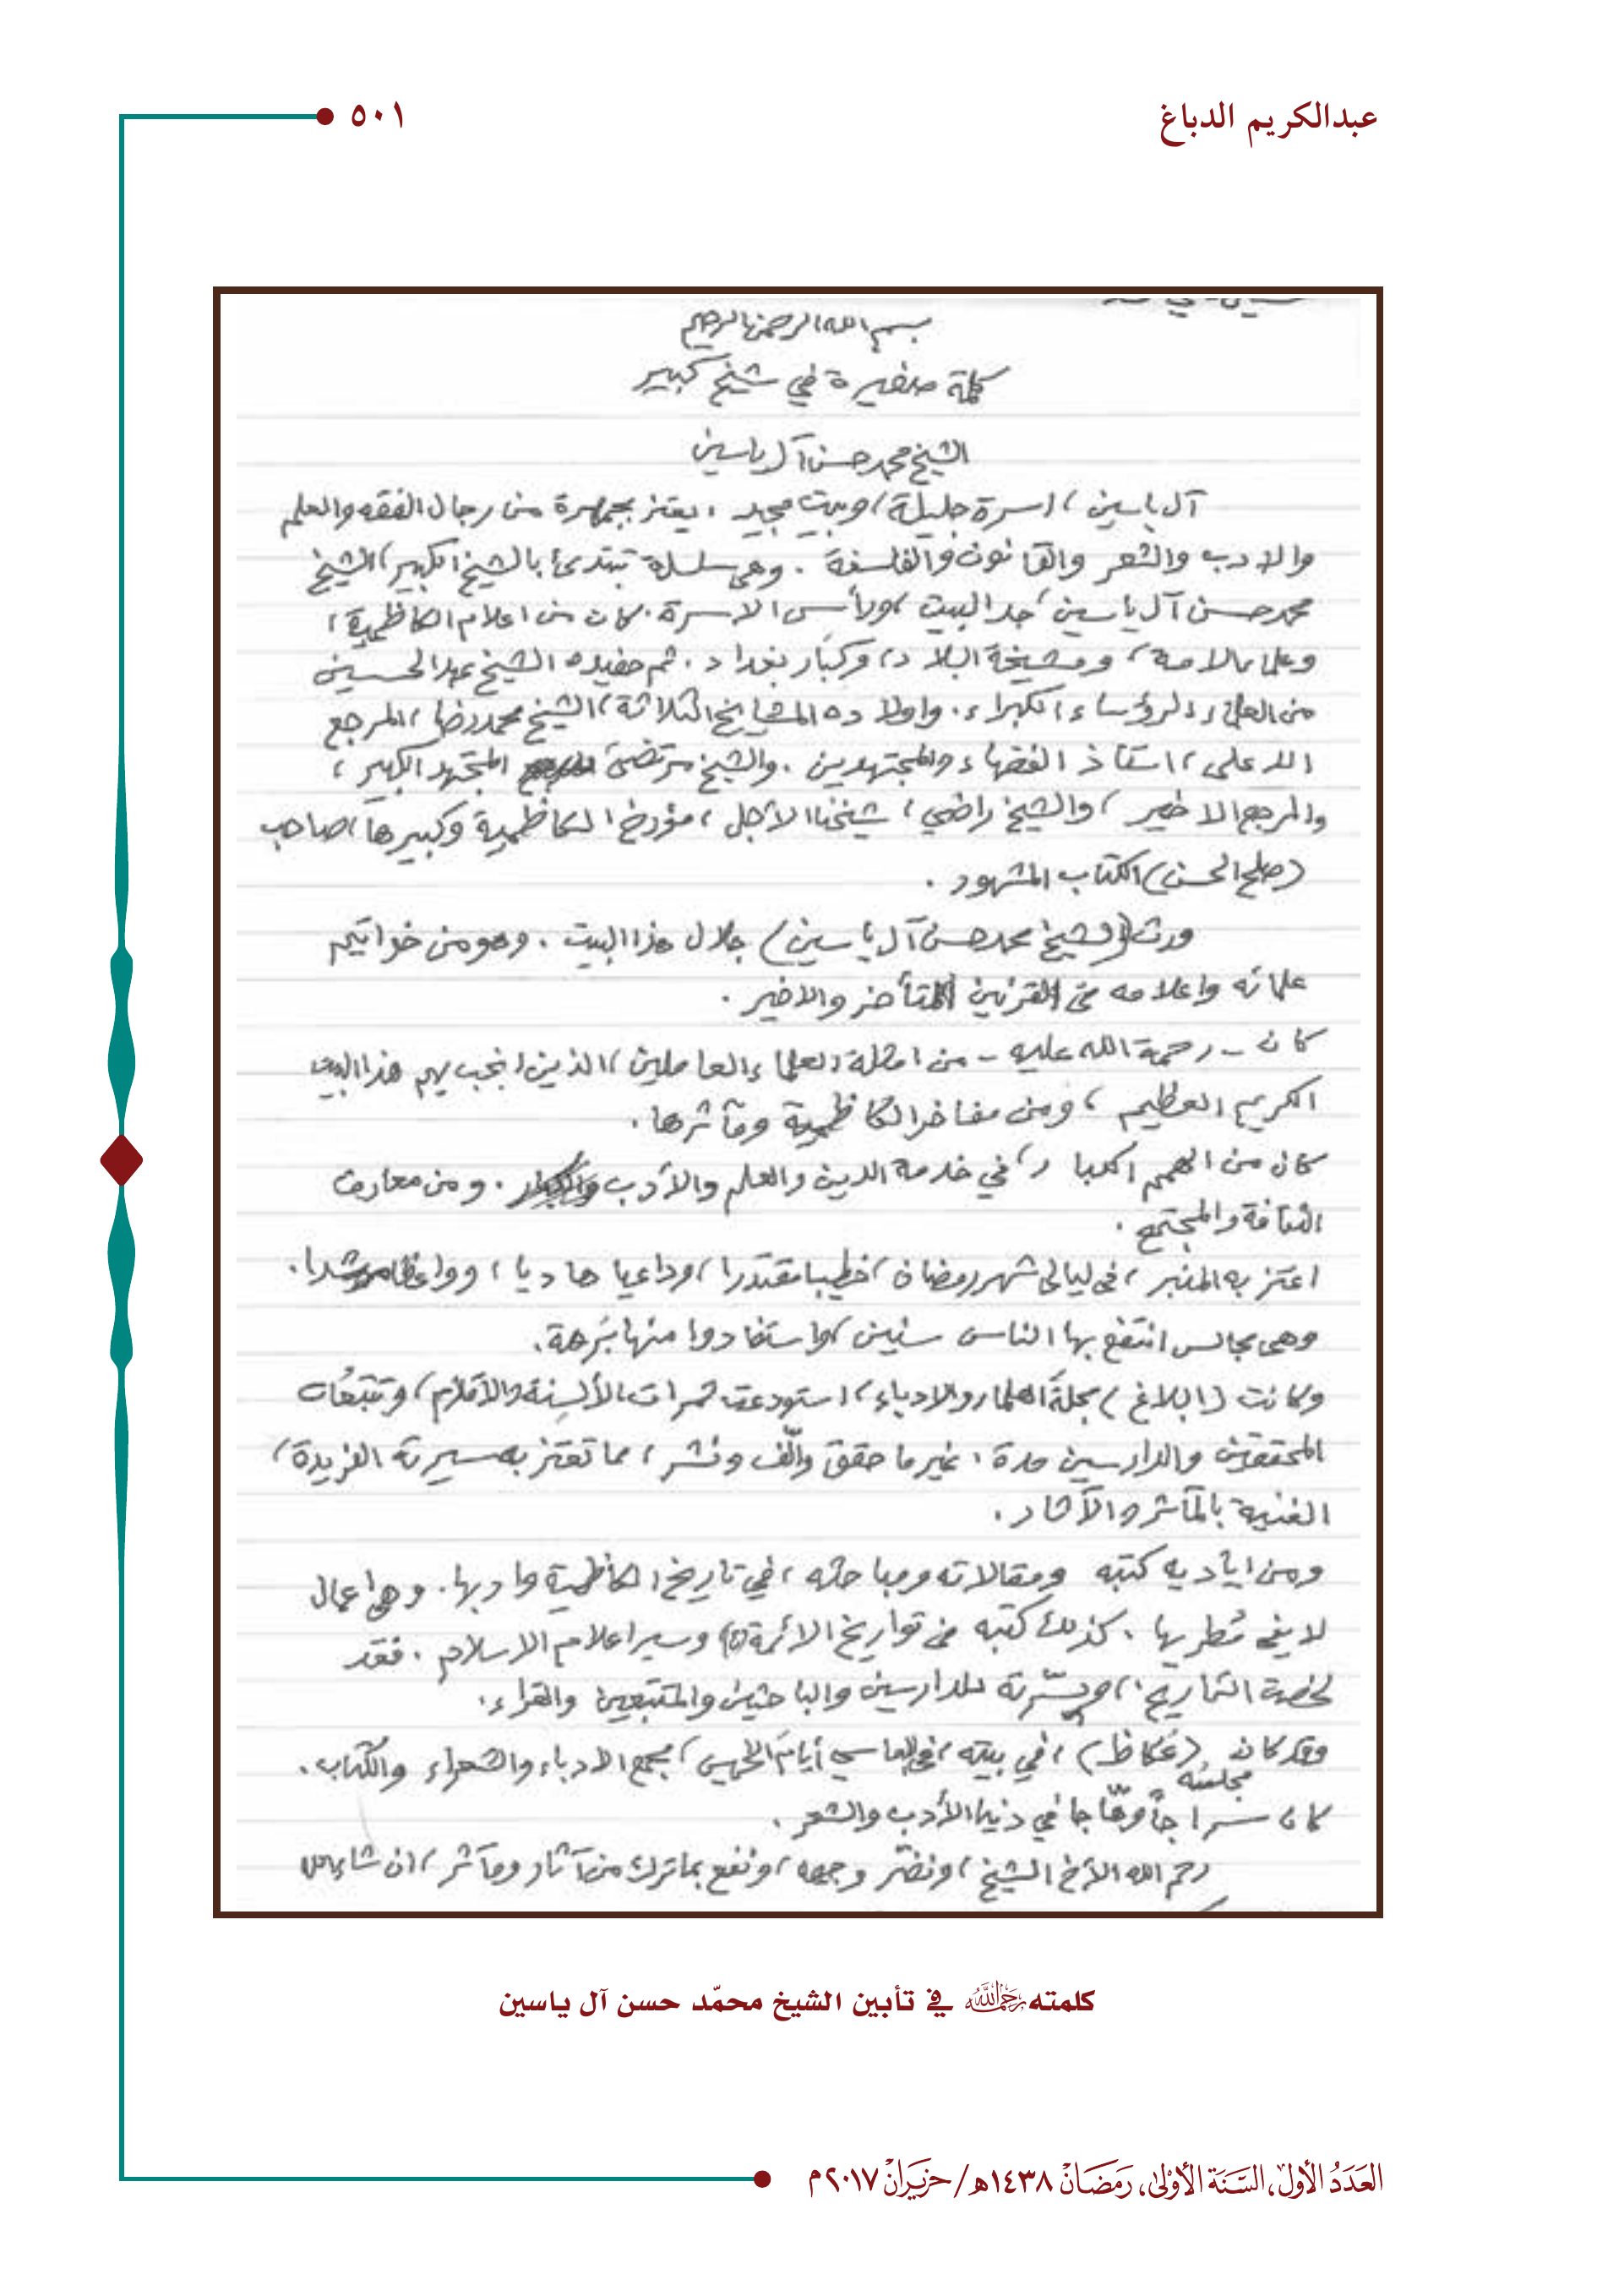 عبدالكريم الدباغ
٥٠١
بسم الله الرحمن الرحيم
كلمة صغيرة في شيخ كبير
الشيخ محمد حسن آل ياسين
آل ياسين، اسرة جليلة، وبيت مجيد، يعتز بجمهرة من رجال الفقه والعلم
والادب والشعر والقانون والفلسفة. وهي سلسلة تبتدئ بالشيخ الكبير، الشيخ
محمد حسن آل ياسين، جد البيت، ورأس الاسرة. كان من اعلام الكاظمية،
وعلماء الامة، ومشيخة البلاد، وكبار بغداد. ثم حفيده الشيخ عبد الحسين
من العلماء الرؤساء الكبراء. واولاده المشايخ الثلاثة، الشيخ محمد رضا، المرجع
الاعلى، استاذ الفقهاء والمجتهدين. والشيخ مرتضى المجتهد الكبير،
والمرجع الاخير، والشيخ راضي، شيخنا الأجل، مؤرخ الكاظمية وكبيرها، صاحب
(صلح الحسن) الكتاب المشهور.
ورث (الشيخ محمد حسن آل ياسين) جلال هذا البيت. وهو من خواتيم
علمائه واعلامه في القرنين المتأخر والاخير.
كان - رحمة الله عليه - من امثلة العلماء العاملين، الذين انجب بهم هذا البيت
الكريم العظيم، ومن مفاخر الكاظمية ومآثرها.
كان من الهمم الكبار، في خدمة الدين والعلم والأدب. ومن معارف
الثقافة والمجتمع.
اعتز به المنبر، في ليالي شهر رمضان، خطيبا مقتدرا، وداعيا هاديا، وواعظا مرشدا.
وهي مجالس انتفع بها الناس سنين، واستفادوا منها بُرهة.
وكانت (البلاغ) مجلة العلماء والادباء، استودعت ثمرات الألسِنة والأقلام، وتتبّعات
المحققين والدارسين مدة، غير ما حقق وألّف ونشر، مما تعتز به سيرته الفريدة،
الغنية بالمآثر والآثار.
ومن اياديه كتبه ومقالاته ومباحثه، في تاريخ الكاظمية وادبها. وهي اعمال
لا يفي مُطريها. كذلك كتبه في تواريخ الائمة (ع) وسير اعلام الاسلام. فقد
لخصت التاريخ، ويسّرته للدارسين والباحثين والمتتبعين والقراء.
وقد كان (عُكاظ)، في بيته، في اماسي أيام الخميس، مجمع الادباء والشعراء والكتاب.
مجلسُه
كان سراجاً وهّاجا في دنيا الأدب والشعر.
رحم الله الأخ الشيخ، ونضّر وجهه، ونفع بما ترك من آثار ومآثر، ان شاء الله
كلمته رحمه الله في تأبين الشيخ محمّد حسن آل ياسين
العَدَدُ الأول، السَّنَة الأوْلى، رَمَضَانْ ١٤٣٨هـ/ حزيَرانْ ٢٠١٧م